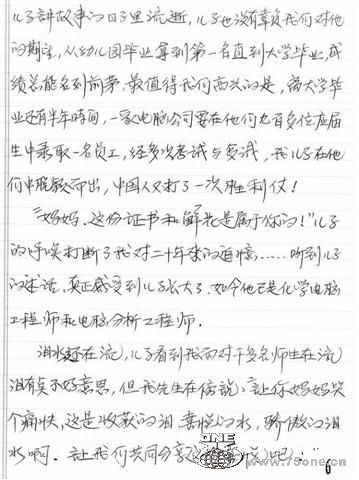 儿子讲故事的日子里流逝,儿子也没有辜负我们对他
的期望,从幼儿园毕业拿到第一名直到大学毕业,成
绩总能名列前茅,最值得我们高兴的是,离大学毕
业还有半年时间,一家电脑公司要在他们七百多位应届
生中录取一名员工,经多次考试与复试,我儿子在他
们中脱颖而出,中国人又打了一次胜利仗!
"妈妈,这份证书和鲜花是属于你的!"儿子
的呼唤打断了我对二十年来的追忆,……听到儿子
的述话,真正感受到儿子长大了.如今他已是化学电脑
工程师和电脑分析工程师.
泪水还在流,儿子看到我面对千多名师生在流
泪有点不好意思,但我先生在傍说:让你妈妈哭
个痛快,这是收获的泪,喜悦的水,骄傲的泪
水啊.让我们共同分享这喜悦吧!
ONE
www.75one.cn
6